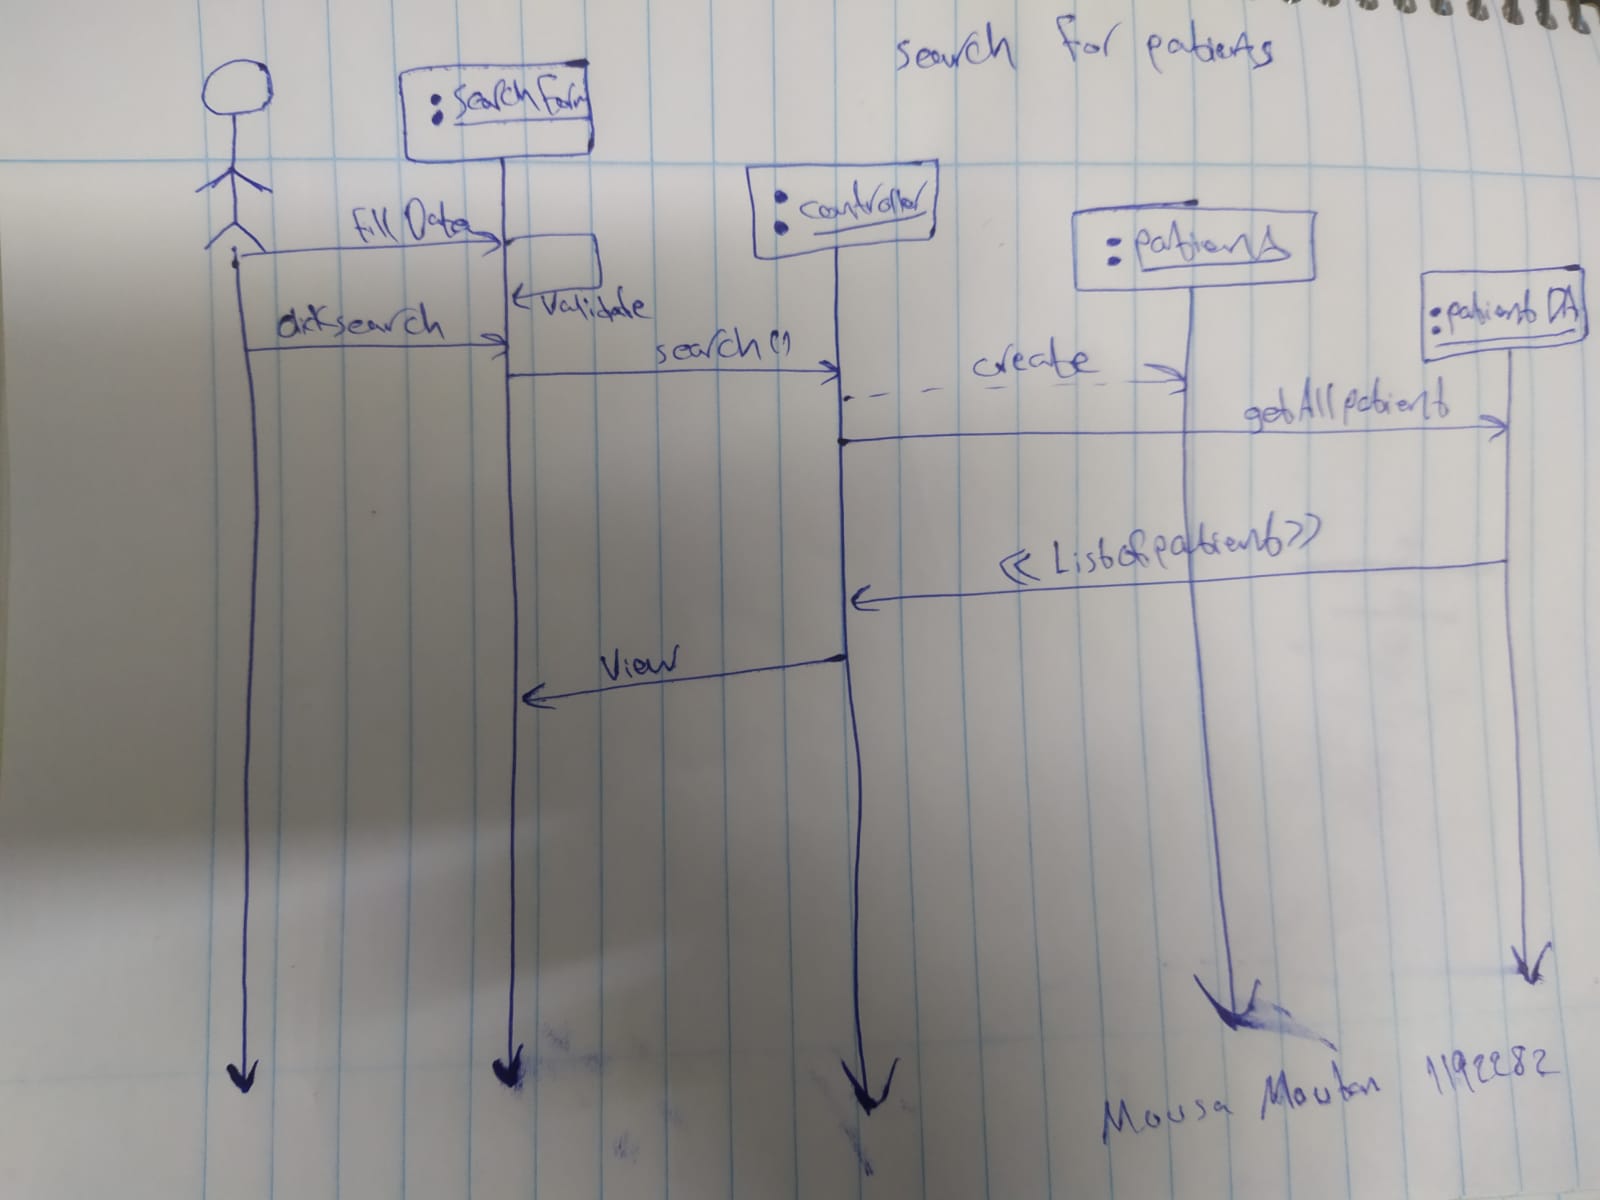 search for patients
: searchForm
: controller
: patient
: patient DA
Fill Data
validate
clicksearch
search()
create
getAllpatient
<< Listofpatient>>
View
Mousa Moutan 1192282